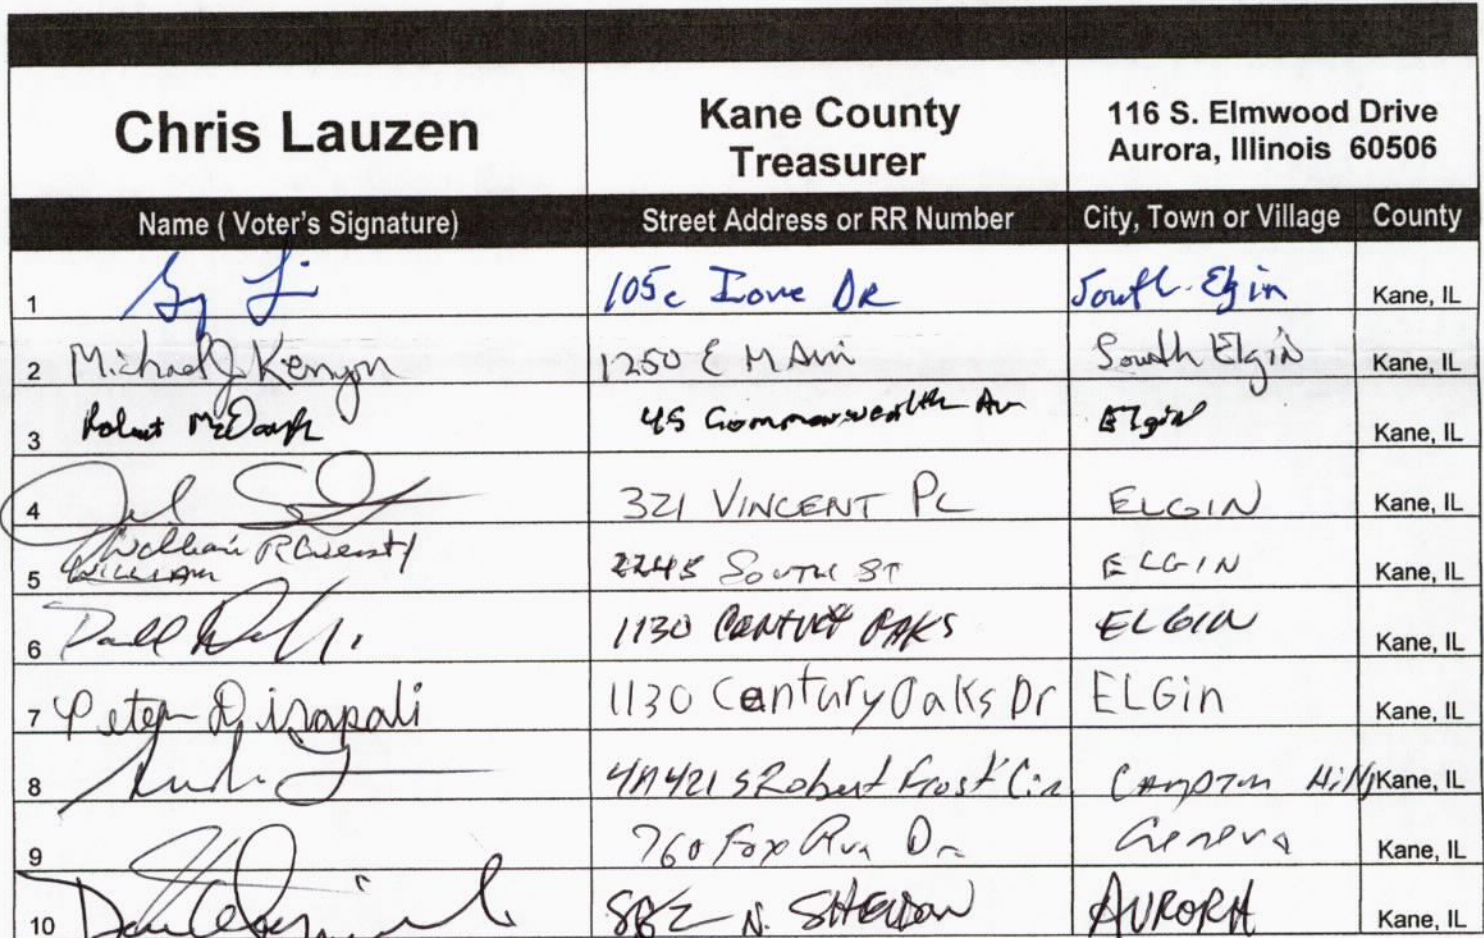 Chris Lauzen
Kane County
Treasurer
116 S. Elmwood Drive
Aurora, Illinois 60506
Name ( Voter's Signature) Street Address or RR Number City, Town or Village County
1 DR South Elgin Kane, IL
2 Michael J Kenyon 1250 E MAin South Elgin Kane, IL
3 Robert 45 Commonwealth Av Elgin Kane, IL
4 321 VINCENT PL ELGIN Kane, IL
5 William R
WILLIAM 2245 SOUTH ST ELGIN Kane, IL
6 1130 CENTURY OAKS ELGIN Kane, IL
7 Peter 1130 Century Oaks Dr ELGin Kane, IL
8 4N421 S Robert Frost Cir Campton Hills Kane, IL
9 760 Fox Run Dr Geneva Kane, IL
10 N. AURORA Kane, IL